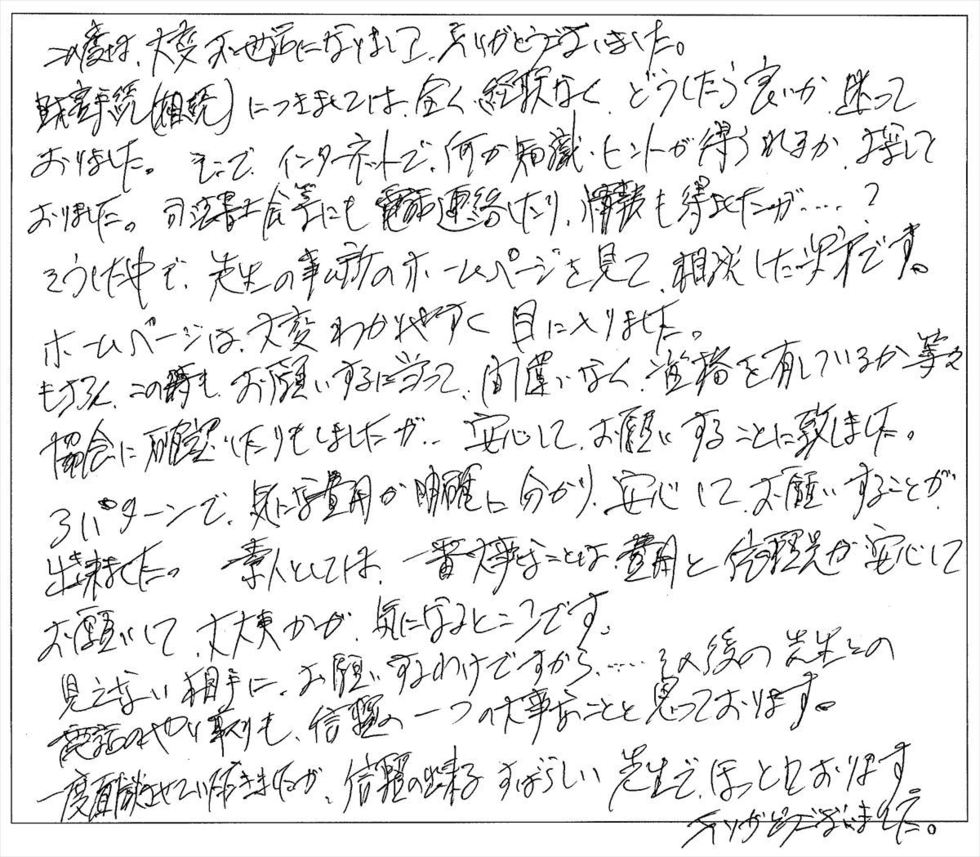 この度は、大変お世話になりまして、ありがとうございました。
財産手続(相続)につきましては、全く経験なく、どうしたら良いか、迷って
おりました。そこで、インターネットで、何か知識・ヒントが得られるか、お探して
おりました。司法書士会等にも電話連絡したり、情報も得ましたが‥‥?
そうした中で、先生の事務所のホームページを見て、相談した次第です。
ホームページは、大変わかりやすく目に入りました。
もちろん、この時も、お願いするに当って、間違いなく、資格を有しているか等々
協会に確認いたりもしましたが‥安心して、お願いすることに致しました。
3パターンで、気になる費用が明確に分かり、安心して、お願いすることが
出来ました。素人としては、一番大事なことは、費用と依頼先が安心して
お願いして、大丈夫かが、気になるところです。
見えない相手に、お願いするわけですから、‥‥その後の先生との
電話のやり取りも、信頼の一つの大事なことと思っております。
一度面談させていただきましたが、信頼の出来るすばらしい先生で、ほっとしております
ありがとうございました。